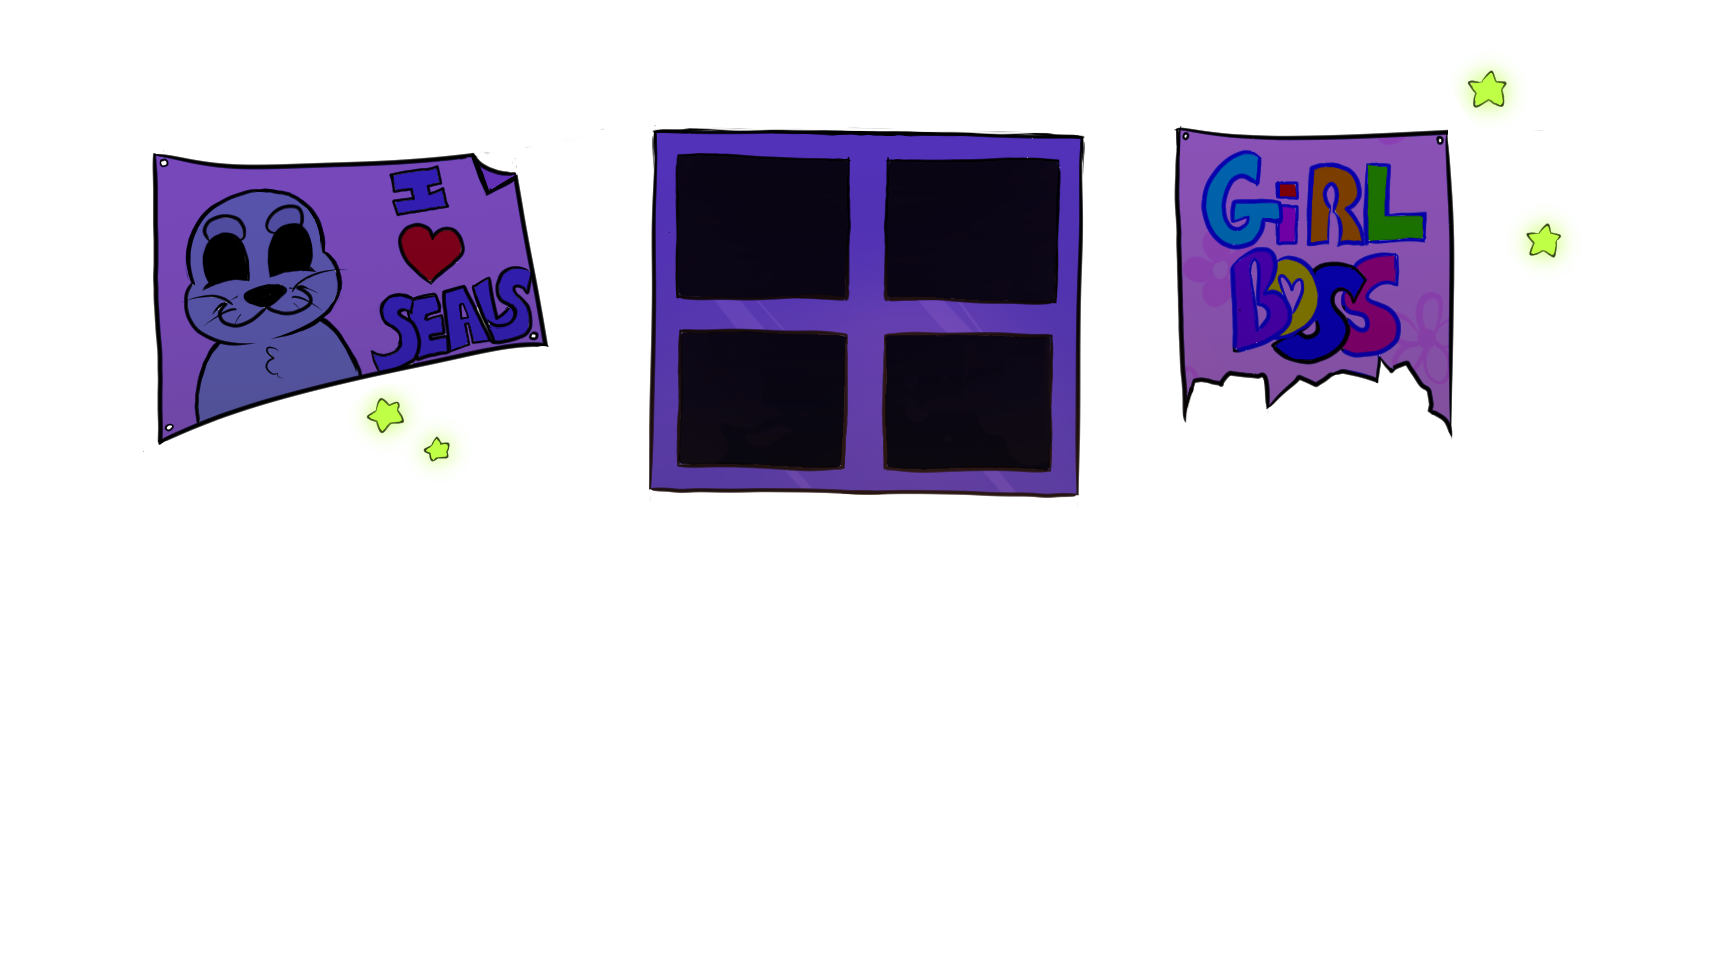 I
❤
SEALS
GiRL
BOSS